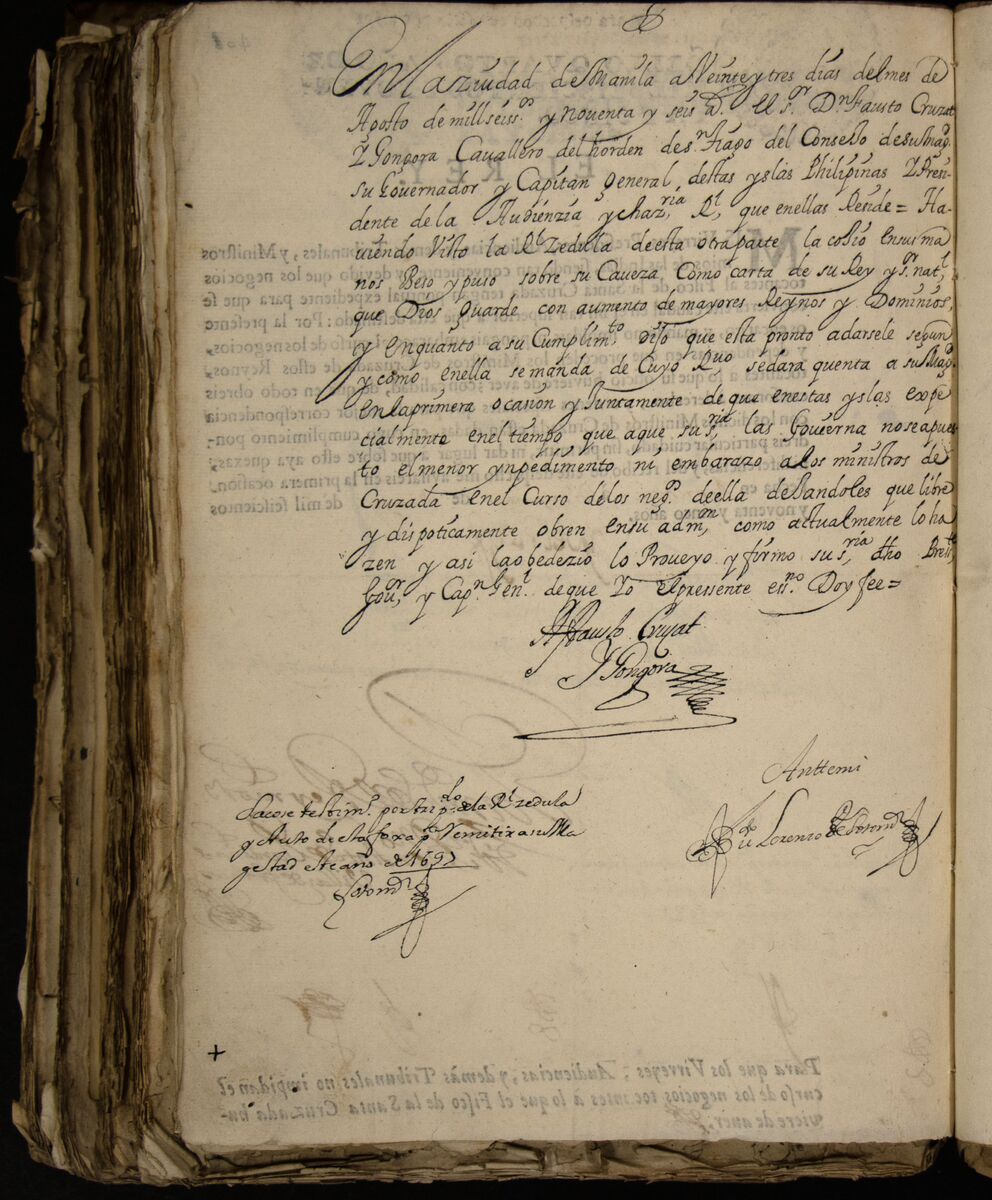 En la ziudad de Manila a Veinte y tres dias del mes de
Agosto de mill seiss.os y noventa y seis a.s El s.or D.n Fausto Cruzat
Y Gongora Cavallero del horden de s.n tiago del Consejo de su Mag.d
su Governador y Capitan general, destas yslas Philipinas Y Presi-
dente de la Audienzia y chaz,ria R.l, que en ellas Reside = Ha-
viendo Visto la R.l Zedulla de esta otra parte la cojio en sus ma
nos Beso y puso sobre su Caveza, Como carta de su Rey y s.r nat,l
que Dios guarde con aumento de mayores Reynos y Dominios,
y en quanto a su Cumplim,to dijo que esta pronto a darsele segun
y como en ella se manda de Cuyo R,vo se dara quenta a su Mag.d
en la primera ocasion y Juntamente de que en estas yslas expe
cialmente en el tiempo que a que su s,ria las Governa no se a pues
to el menor ynpedimento ni embarazo a los ministros de
Cruzada en el Curso de los neg.os de ella dejandoles que libre
y dispoticamente obren en su adm,on como actualmente lo ha
zen y asi la obedezio lo Proveyo y firmo su s,ria dho Pres,te
Gov,or y Cap.n Gen.l de que Yo el pressente ess.no Doy fee =
Fausto Cruzat
Y Gongora
Anttemi
Lorenzo de Sotom.r
Sacose testim.o por trip.do de la R.l zedula
y Auto de esta foxa p.a Remitir a su Ma
gestad este año de 1697
Sotom.r
Para que los Virreyes, Audiencias, y demàs Tribunales no impidan el
curso de los negocios tocantes a lo que el Fisco de la Santa Cruzada hu-
viere de aver.